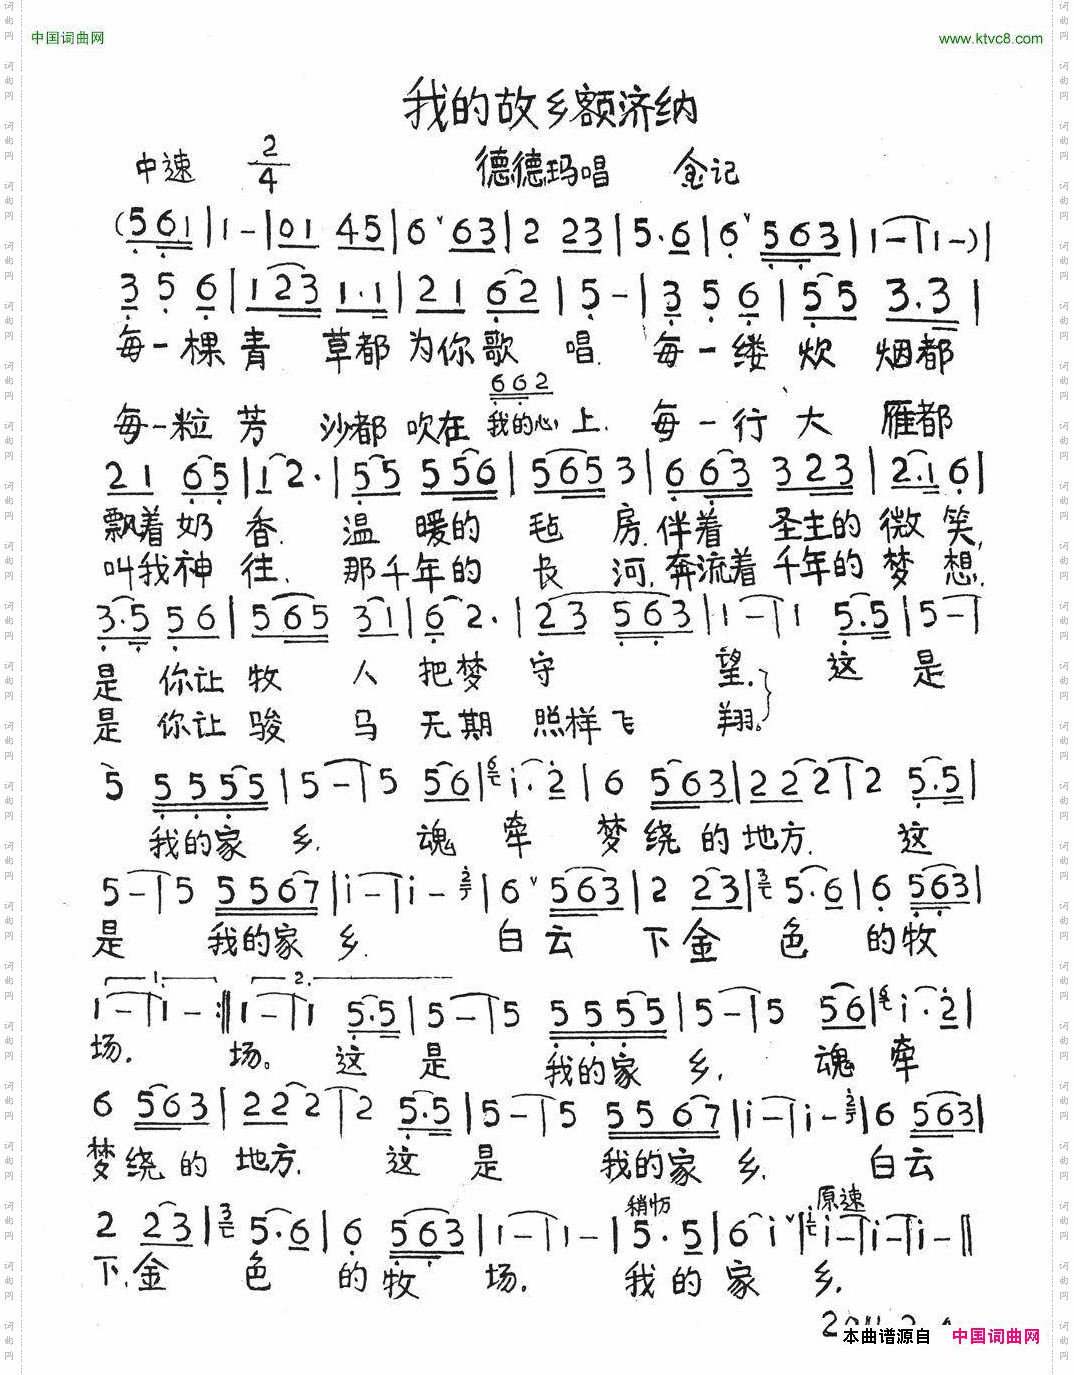 中国词曲网 www.ktvc8.com
我的故乡额济纳
中速 2/4 德德玛唱 金记
(5 6 1 | 1 - | 0 1 4 5 | 6 ˇ 6 3 | 2 2 3 | 5 · 6 | 6 ˇ 5 6 3 | 1 - | 1 - ) |
3 5 6 | 1 2 3 1 · 1 | 2 1 6 2 | 5 - | 3 5 6 | 5 5 3 · 3 |
每一棵青 草都为你歌 唱. 每一缕炊 烟都
6 6 2
每一粒芳 沙都吹在我的心上. 每一行大 雁都
2 1 6 5 | 1 2 · | 5 5 5 5 6 | 5 6 5 3 | 6 6 3 3 2 3 | 2 · 1 6 |
飘着奶香. 温暖的毡房.伴着圣主的微笑,
叫我神往. 那千年的长河.奔流着千年的梦想.
3 · 5 5 6 | 5 6 5 3 1 | 6 2 · | 2 3 5 6 3 | 1 - | 1 5 · 5 | 5 - |
是你让牧 人把梦守 望. 这是
是你让骏 马无期照样飞 翔。
5 5 5 5 5 | 5 - | 5 5 6 | 6 i · 2 | 6 5 6 3 | 2 2 2 | 2 5 · 5 |
我的家乡. 魂牵梦绕的地方. 这
5 - | 5 5 5 6 7 | i - | i - 2 | 6 ˇ 5 6 3 | 2 2 3 | 3 5 · 6 | 6 5 6 3 |
是 我的家乡. 白云下金色的牧
1. 2.
1 - | 1 - :‖ 1 - | 1 5 · 5 | 5 - | 5 5 5 5 5 | 5 - | 5 5 6 | 6 i · 2 |
场. 场。 这是 我的家乡. 魂牵
6 5 6 3 | 2 2 2 | 2 5 · 5 | 5 - | 5 5 5 6 7 | i - | i - 2 | 6 5 6 3 |
梦绕的地方. 这是 我的家乡. 白云
稍慢 原速
2 2 3 | 3 5 · 6 | 6 5 6 3 | 1 - | 1 - | 5 · 5 | 6 i ˇ | i i - | i - | i - ‖
下.金色的牧场. 我的家乡.
本曲谱源自 中国词曲网